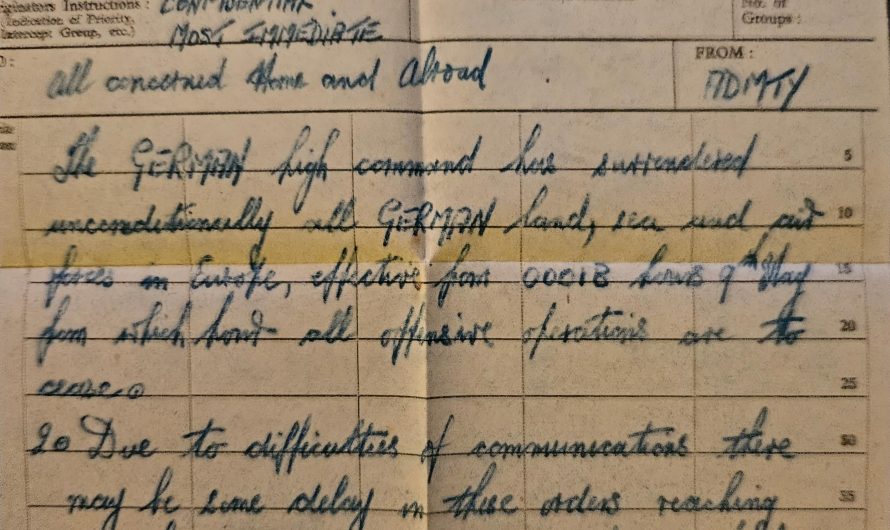 riginators Instructions : CONFIDENTIAL
(Indication of Priority,
Intercept Group, etc.) MOST IMMEDIATE
No. of
Groups :
All concerned Home and Abroad
FROM :
ADMTY
The GERMAN high command has surrendered 5
unconditionally all GERMAN land, sea and air 10
forces in Europe, effective from 0001B hours 9th May 15
from which hour all offensive operations are to 20
cease. 25
2. Due to difficulties of communications there 30
may be some delay in these orders reaching 35